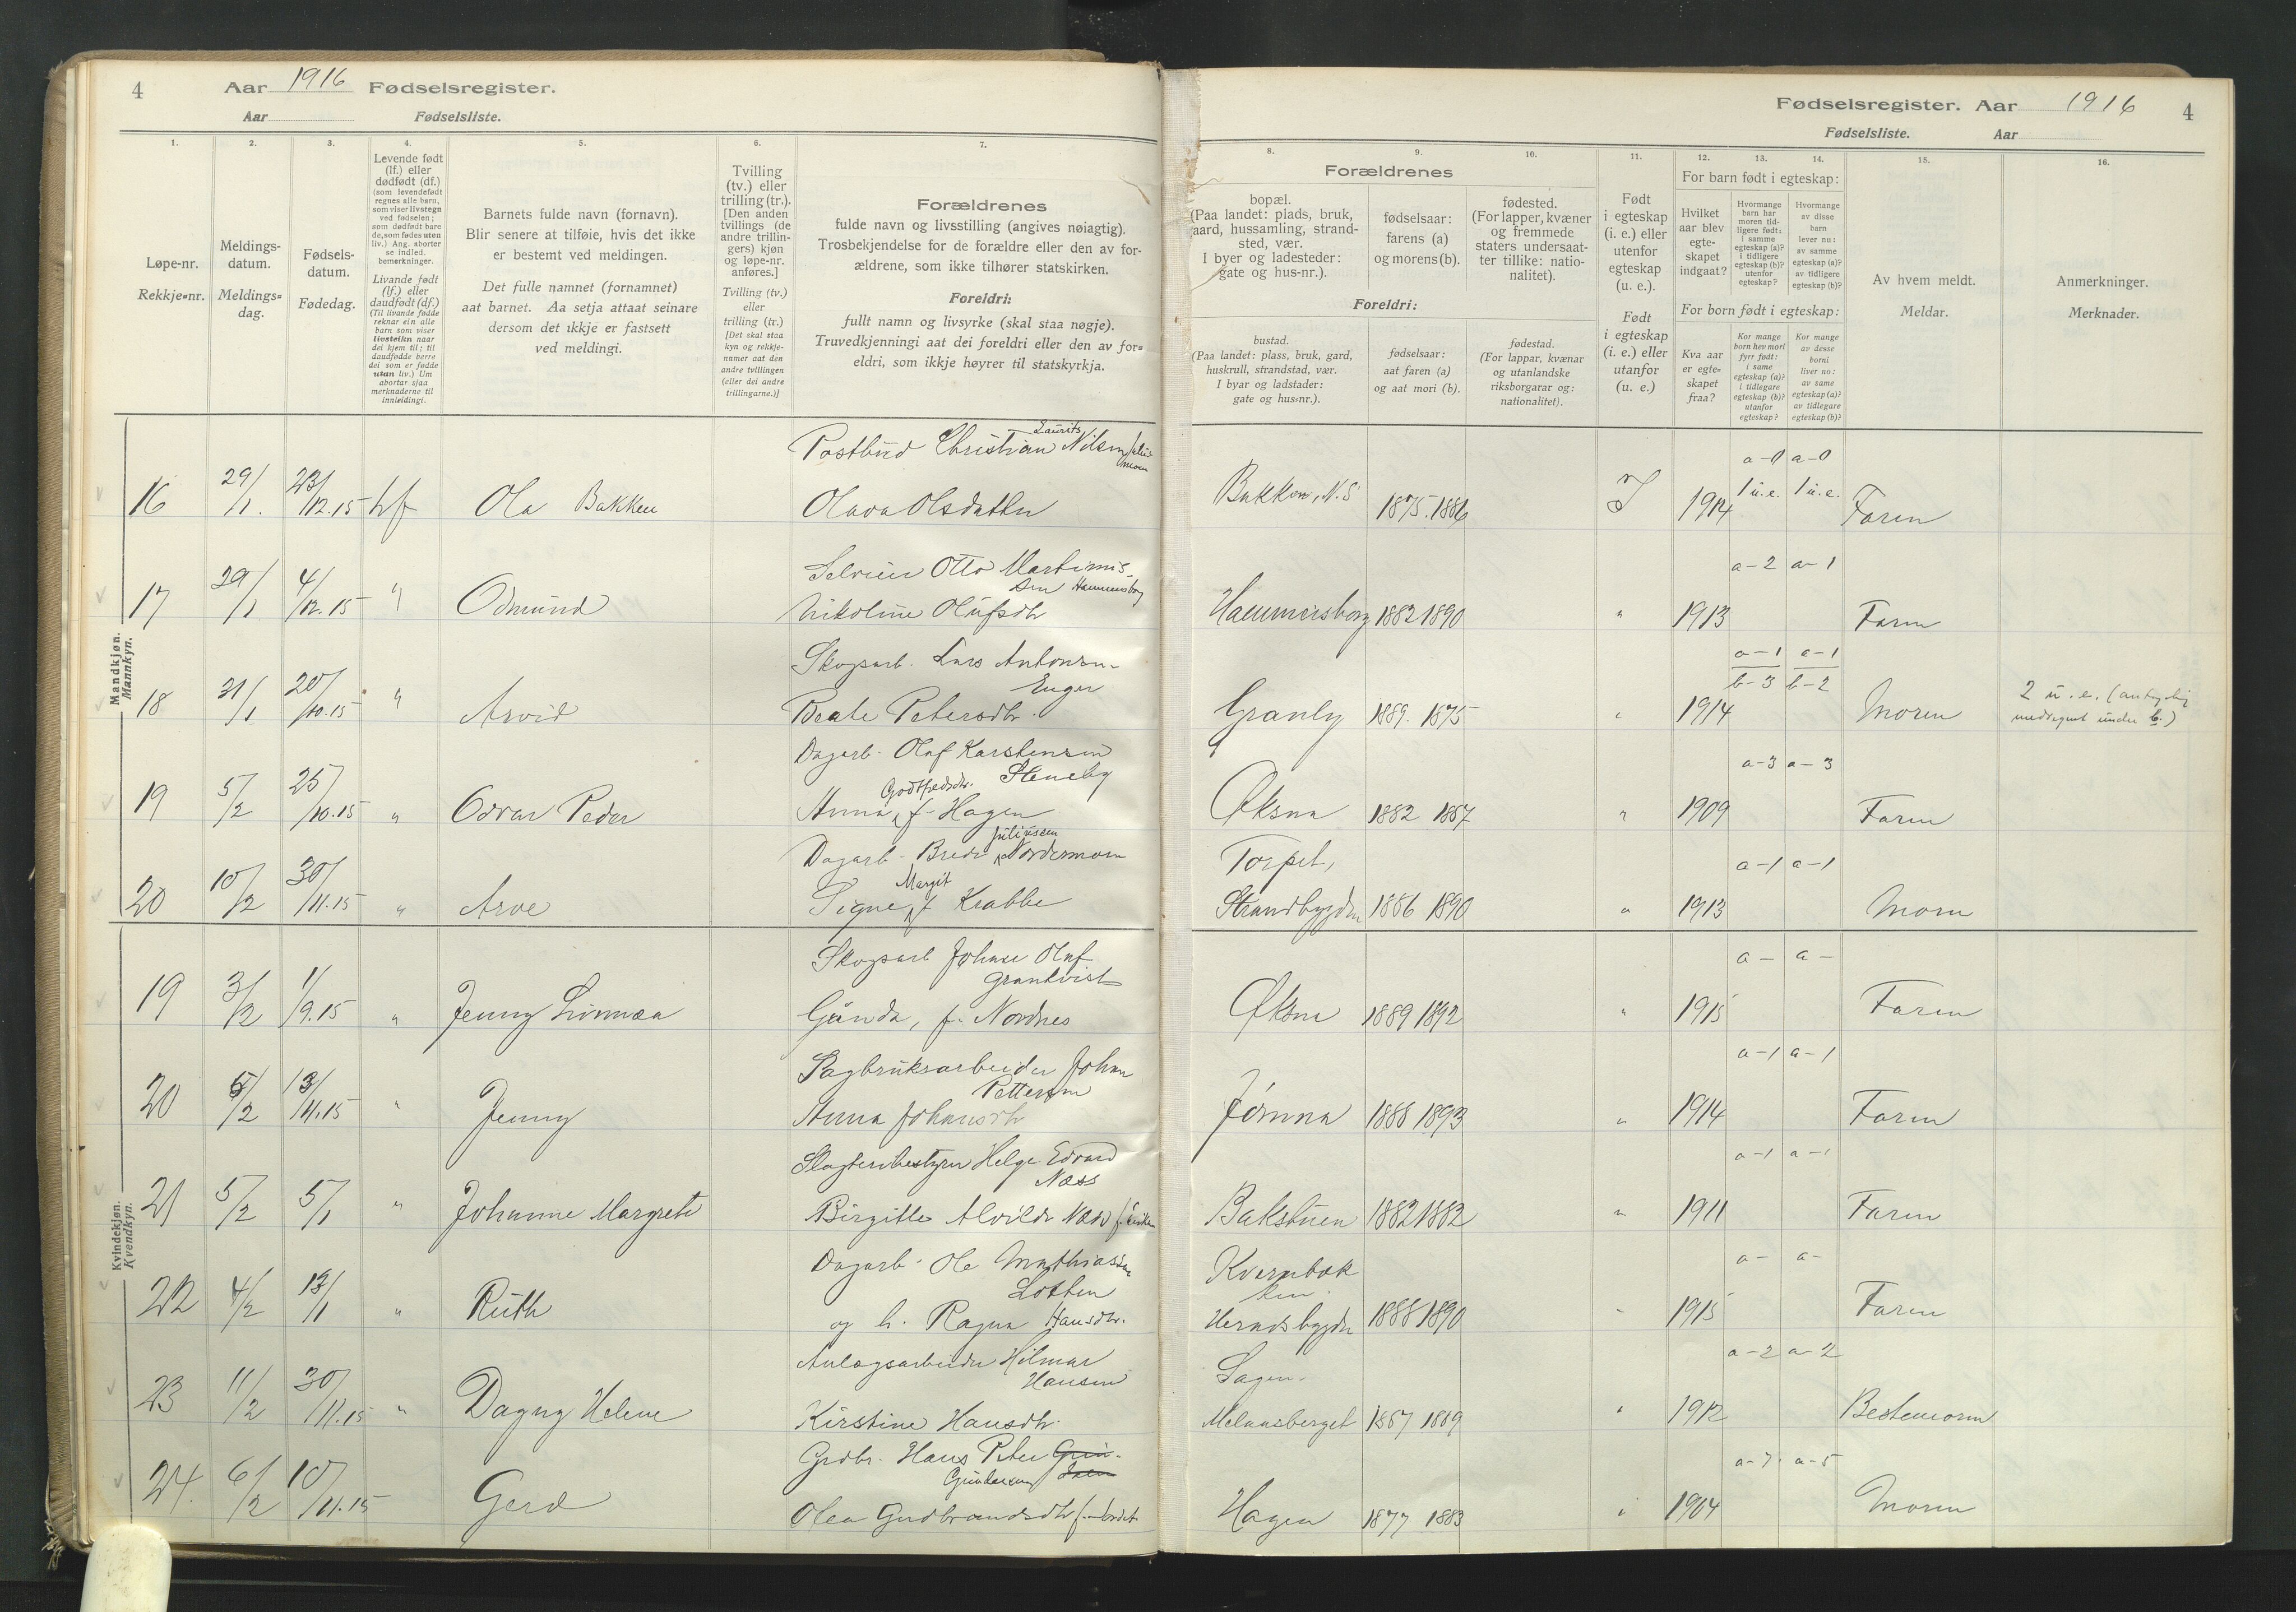 4 Aar 1916 Fødselsregister.
Aar Fødselsliste.
Fødselsregister. Aar 1916 4
Fødselsliste. Aar
1. 2. 3. 4. 5. 6. 7.
Løpe-nr.
Rekkje=nr.
Meldings-
datum.
Meldings=
dag.
Fødsels-
datum.
Fødedag.
Levende født
(lf.) eller
dødfødt (df.)
(som levendefødt
regnes alle barn,
som viser livstegn
ved fødselen;
som dødfødt bare
de, som fødes uten
liv.) Ang. aborter
se indled.
bemerkninger.
Livande født
(lf.) eller
daudfødt (df.)
(Til livande fødde
reknar ein alle
barn som viser
livsteikn naar
dei kjem til; til
daudfødde berre
dei som er fødde
utan liv.) Um
abortar sjaa
merknaderne til
innleidingi.
Barnets fulde navn (fornavn).
Blir senere at tilføie, hvis det ikke
er bestemt ved meldingen.
Det fulle namnet (fornamnet)
aat barnet. Aa setja attaat seinare
dersom det ikkje er fastsett
ved meldingi.
Tvilling
(tv.) eller
trilling (tr.).
[Den anden
tvillings (de
andre trillin-
gers) kjøn
og løpe-nr.
anføres.]
Tvilling (tv.)
eller
trilling (tr.)
[Det skal staa
kyn og rekkje-
numer aat den
andre tvillingen
(eller dei andre
trillingarne.)]
Forældrenes
fulde navn og livsstilling (angives nøiagtig).
Trosbekjendelse for de forældre eller den av for-
ældrene, som ikke tilhører statskirken.
Foreldri:
fullt namn og livsyrke (skal staa nøgje).
Truvedkjenningi aat dei foreldri eller den av for=
eldri, som ikkje høyrer til statskyrkja.
8. 9. 10. 11. 12. 13. 14. 15. 16.
Forældrenes
bopæl.
(Paa landet: plads, bruk,
gaard, hussamling, strand-
sted, vær.
I byer og ladesteder:
gate og hus-nr.).
fødselsaar:
farens (a)
og morens (b).
fødested.
(For lapper, kvæner
og fremmede
staters undersaat-
ter tillike: natio-
nalitet).
Foreldri:
bustad.
(Paa landet: plass, bruk, gard,
huskrull, strandstad, vær.
I byar og ladstader:
gate og hus=nr.).
fødselsaar:
aat faren (a)
og aat mori (b).
fødestad.
(For lappar, kvænar
og utanlandske
riksborgarar og:
nationalitet).
Født
i egteskap
(i. e.) eller
utenfor
egteskap
(u. e.).
Født
i egteskap
(i. e.) eller
utanfor
(u. e.)
For barn født i egteskap:
Hvilket
aar blev
egte-
skapet
indgaat?
Hvormange
barn har
moren tid-
ligere født:
i samme
egteskap (a)?
i tidligere
egteskap (b)?
utenfor
egteskap?
Hvormange
av disse
barn
lever nu:
av samme
egteskap (a)?
av tidligere
egteskap (b)?
For born født i egteskap:
Kva aar
er egte-
skapet
fraa?
Kor mange
born hev mori
fyrr født:
i same
egteskap (a)?
i tidlegare
egteskap (b)?
utanfor
egteskap?
Kor mange
av desse
borni
liver no:
av same
egteskap (a)?
av tidlegare
egteskap (b)?
Av hvem meldt.
Meldar.
Anmerkninger.
Merknader.
Mandkjøn.
Mannkyn.
Laurits
Postbud Christian Nilsen a-0 a-0
16 29/1. 23/12.15 Lf Ola Bakken Olava Olsdatter Bakken, N.S. 1875. 1886 I 1914 1 u.e. 1 u.e. Faren
Otto Martinius-
sen Hammersborg a-2 a-1
17 29/1 4/12.15 " Odmund Nikoline Olufsdtr Hammersborg 1882 1890 " 1913 Faren
Skogsarb. Lars Antonsen a-1 a-1
Enger b-3 b-2
18 31/1 20/10.15 " Arvid Beate Petersdtr. Granly 1889. 1875 " 1914 Moren 2 u.e. (antagelig
medregnet under b.)
Dagarb. Olaf Karstensen
Steneby a-3 a-3
Godtfredsdtr.
19 5/2 25/10.15 " Odvar Peder Anna, f. Hagen Øksna 1882 1887 " 1909 Faren
Juliussen
Dagarb. Nordermoen Torpet, a-1 a-1
Margit
20 10/2 30/11.15 " Arve Signe, f. Krabbe Strandbygden 1886 1890 " 1913 Moren
Kvindekjøn.
Kvendkyn.
Skogsarb Johan Olaf
Grankvist a- a-
19 3/2 1/9.15 " Jenny Linnæa Gunda, f. Nordnes Øksna 1889 1892 " 1915 Faren
Sagbruksarbeider Johan
Pettersen a-1 a-1
20 5/2 13/11.15 " Jenny Anna Johansdtr Jømna 1888 1893 " 1914 Faren
Slagteribestyrer Helge Edvard
Næss a-1 a-1
21 5/2 5/1 " Johanne Margrete Birgitte Alvilde Næss Bakstuen 1882 1882 " 1911 Faren
Dagarb. Ole Mathiassen
Lotten Kvernbæk
ken. a- a-
22 4/2 13/1 " Ruth og h. Ragna Hansdtr. Hernesbygden 1888 1890 " 1915 Faren
Anlægsarbeider Hilmar
Hansen Sagen. a-2 a-2
23 11/2 30/11.15 " Dagny Helene Kirstine Hansdtr. Melaasberget 1887 1889 " 1912 Bestemoren
Grdbr. Hans Peter
Gundersen a-7. a-5
24. 6/2 10/11.15 Gerd Olea Gudbrandsdtr Hagen 1877 1883 " 1904 Moren